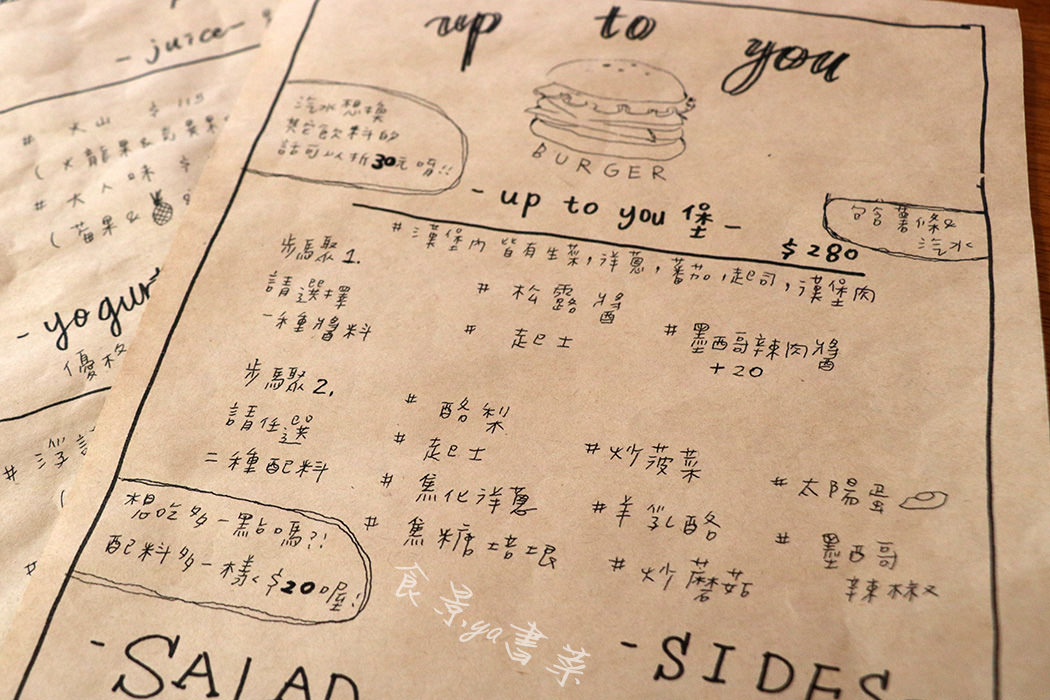 up to you
BURGER
汽水想換
其它飲料的
話可以折30元唷!!
- up to you 堡 -
$280
包含薯條&
汽水
# 漢堡內 皆有生菜,洋蔥,蕃茄,起司,漢堡肉
步驟 1.
請選擇
一種醬料
# 松露醬
# 起士
# 墨西哥辣肉醬
+20
步驟 2.
請任選
二種配料
# 酪梨
# 起士
# 焦化洋蔥
# 焦糖培根
# 炒菠菜
# 羊乳酪
# 炒蘑菇
# 太陽蛋
# 墨西哥
辣椒
想吃多一點嗎?!
配料多一樣<$20喔!
- SALAD
- SIDES
- juice -
# 火山 $115
(火龍果&
# 大人味 $
(莓果&
- yogur
優格
食景.ya書菜